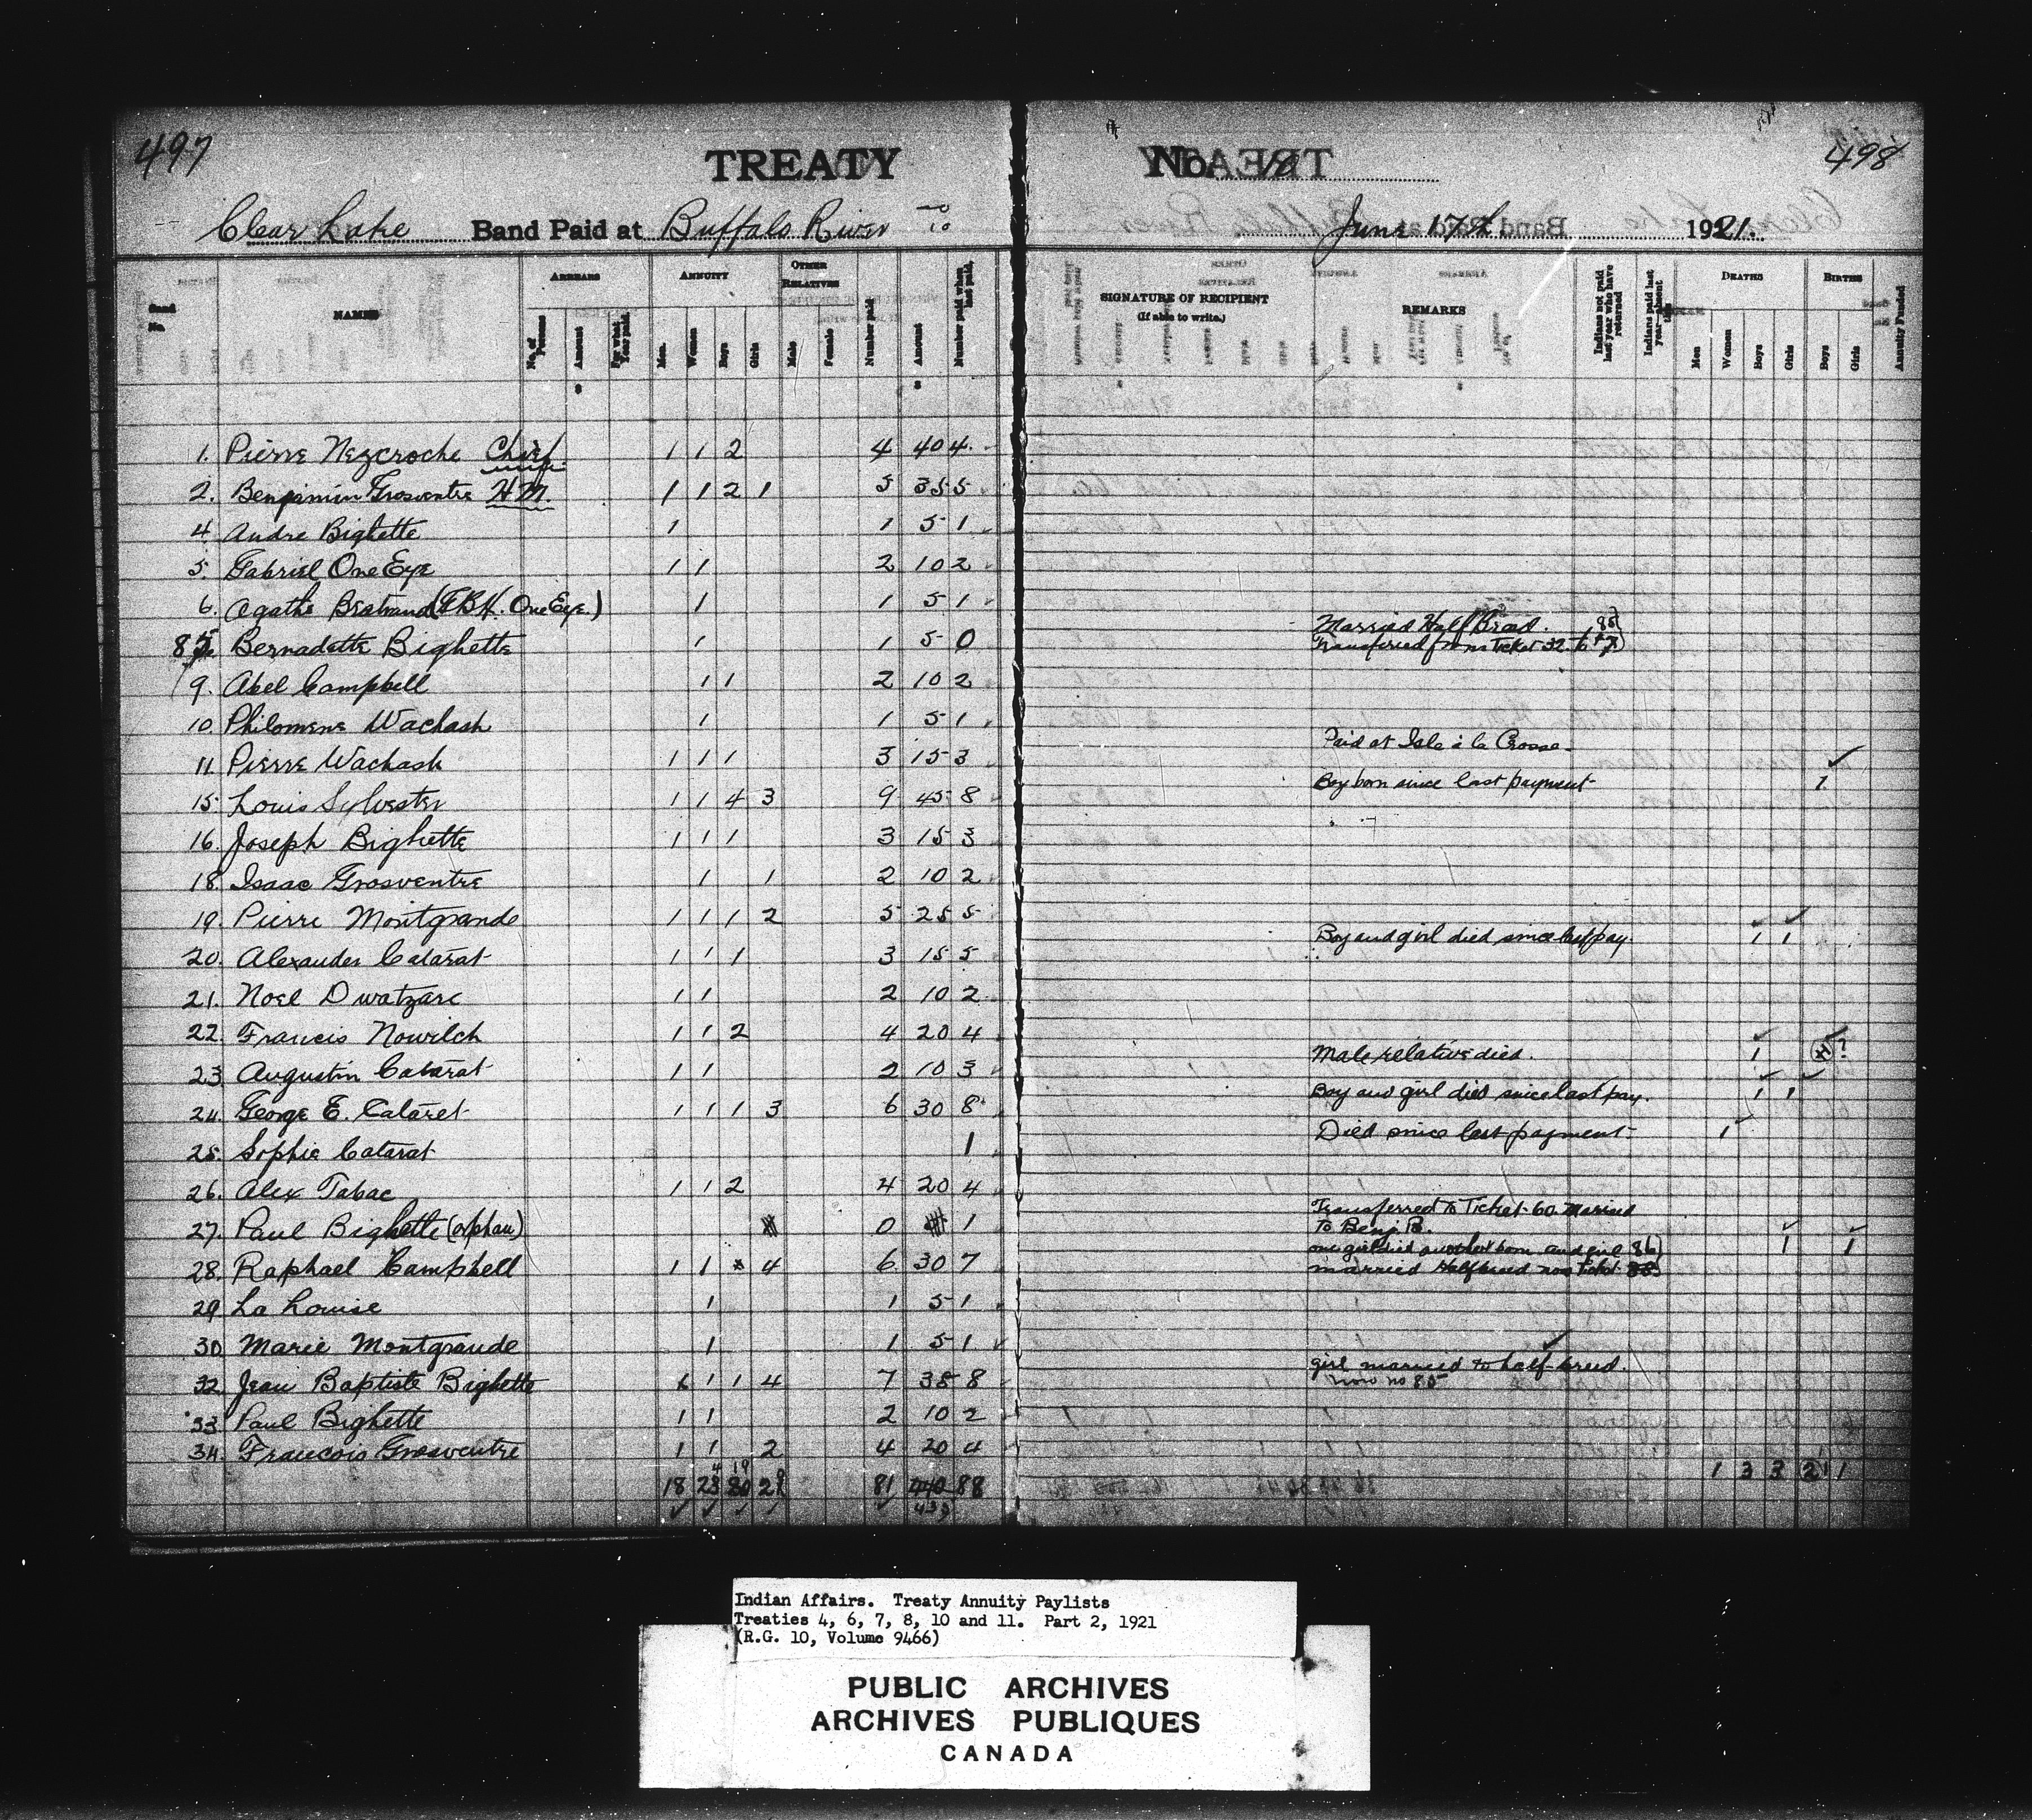 497
TREATY No. 10
498
Clear Lake Band Paid at Buffalo River June 17th 1921.
Band No.
NAMES
ARREARS
No. of Persons
Amount
For what Year paid.
ANNUITY
Men.
Women
Boys
Girls
OTHER RELATIVES
Male
Female
Number paid
Amount
Number paid when last paid.
SIGNATURE OF RECIPIENT
(If able to write.)
REMARKS
Indians not paid last year who have returned
Indians paid last year—absent this
DEATHS
Men
Women
Boys
Girls
BIRTHS
Boys
Girls
Annuity Funded
1. Pierre Nezcroche Chief 1 1 2 4 40 4
2. Benjamin Grosventre H.M. 1 1 2 1 5 35 5
4 Andre Bighette 1 1 5 1
5. Gabriel One Eye 1 1 2 10 2
6. Agathe Bertrand (F.B.H. One Eye.) 1 1 5 1
85 Bernadette Bighette 1 1 5 0 Married Half Breed. Transferred from Ticket 32
9. Abel Campbell 1 1 2 10 2
10. Philomene Wachash 1 1 5 1
11. Pierre Wachash 1 1 1 3 15 3 Paid at Isle à la Crosse
15 Louis Sylvester 1 1 4 3 9 45 8 Boy born since last payment 1
16. Joseph Bighette 1 1 1 3 15 3
18 Isaac Grosventre 1 1 2 10 2
19. Pierre Montgrande 1 1 1 2 5 25 5
20. Alexander Catarat 1 1 1 3 15 5 Boy and girl died since last pay. 1 1
21. Noel Dwatzare 1 1 2 10 2
22. Francis Nowilch 1 1 2 4 20 4
23 Augustin Catarat 1 1 2 10 3 Male relative died. 1 ?
24. George E. Cataret 1 1 1 3 6 30 8 Boy and girl died since last pay. 1 1
25. Sophie Catarat 1 Died since last payment. 1
26. Alex Tabac 1 1 2 4 20 4
27. Paul Bighette (orphan) 0 1 Transferred to Ticket 60. Married to Benj. B.
28. Raphael Campbell 1 1 4 6 30 7 one girl died another born and girl 86) married Halfbreed now Ticket 1 1
29 La Louise 1 1 5 1
30 Marie Montgrande 1 1 5 1
32. Jean Baptiste Bighette 1 1 1 4 7 35 8 girl married to half-breed. now no 85
33 Paul Bighette 1 1 2 10 2
34. Francois Grosventre 1 1 2 4 20 4
18 23 20 21 81 440 88 1 3 3 2 1 1
Indian Affairs. Treaty Annuity Paylists
Treaties 4, 6, 7, 8, 10 and 11. Part 2, 1921
(R.G. 10, Volume 9466)
PUBLIC ARCHIVES
ARCHIVES PUBLIQUES
CANADA